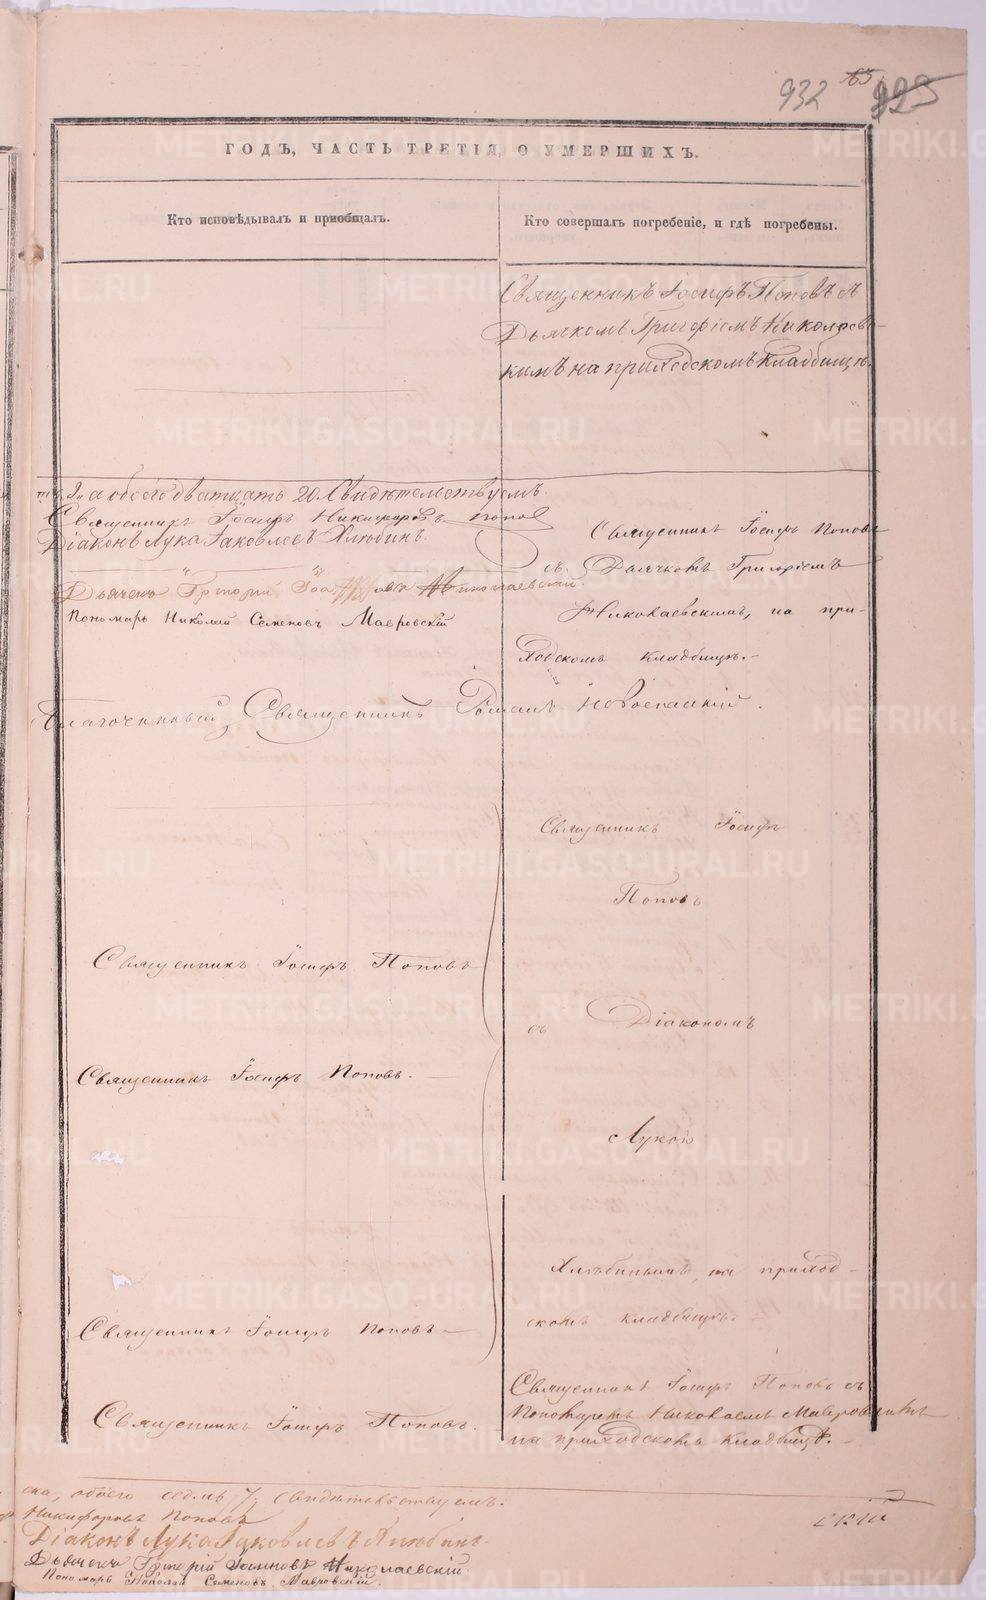 932 63 925
ГОДЪ, ЧАСТЬ ТРЕТІЯ, О УМЕРШИХЪ.
Кто исповѣдывалъ и пріобщалъ.
Кто совершалъ погребеніе, и гдѣ погребены.
Священникъ Іосифъ Поповъ съ
Дьячкомъ Григоріемъ Николаевс-
кимъ на приходскомъ кладбищѣ.
а обоего дватцать 20. Свидѣтельствуемъ.
Священникъ Іосифъ Никифоровъ Поповъ
Діаконъ Лука Іаковлевъ Хлюбинъ.
Дьячекъ Григорій Іоанновъ Николаевскій.
Пономарь Николай Семеновъ Мавровскій
Священникъ Іосифъ Поповъ
съ Дьячкомъ Григоріемъ
Николаевскимъ, на при-
ходскомъ кладбищѣ.-
Благочинный Священникъ Романъ Новоспаскій.
Священникъ Іосифъ
Поповъ
Священникъ Іосифъ Поповъ
съ Діакономъ
Священникъ Іосифъ Поповъ. —
Лукою
Хлюбинымъ, на приход-
скомъ кладбищѣ.
Священникъ Іосифъ Поповъ —
Священникъ Іосифъ Поповъ съ
Пономаремъ Николаемъ Мавровскимъ
на приходскомъ кладбищѣ. —
Священникъ Іосифъ Поповъ.
ска, обоего седмь 7, свидѣтельствуемъ.
Никифоровъ Поповъ
Діаконъ Лука Іаковлевъ Хлюбинъ.
Дьячекъ Григорій Іоанновъ Николаевскій.
Пономарь Николай Семеновъ Мавровскій.
METRIKI.GASO-URAL.RU